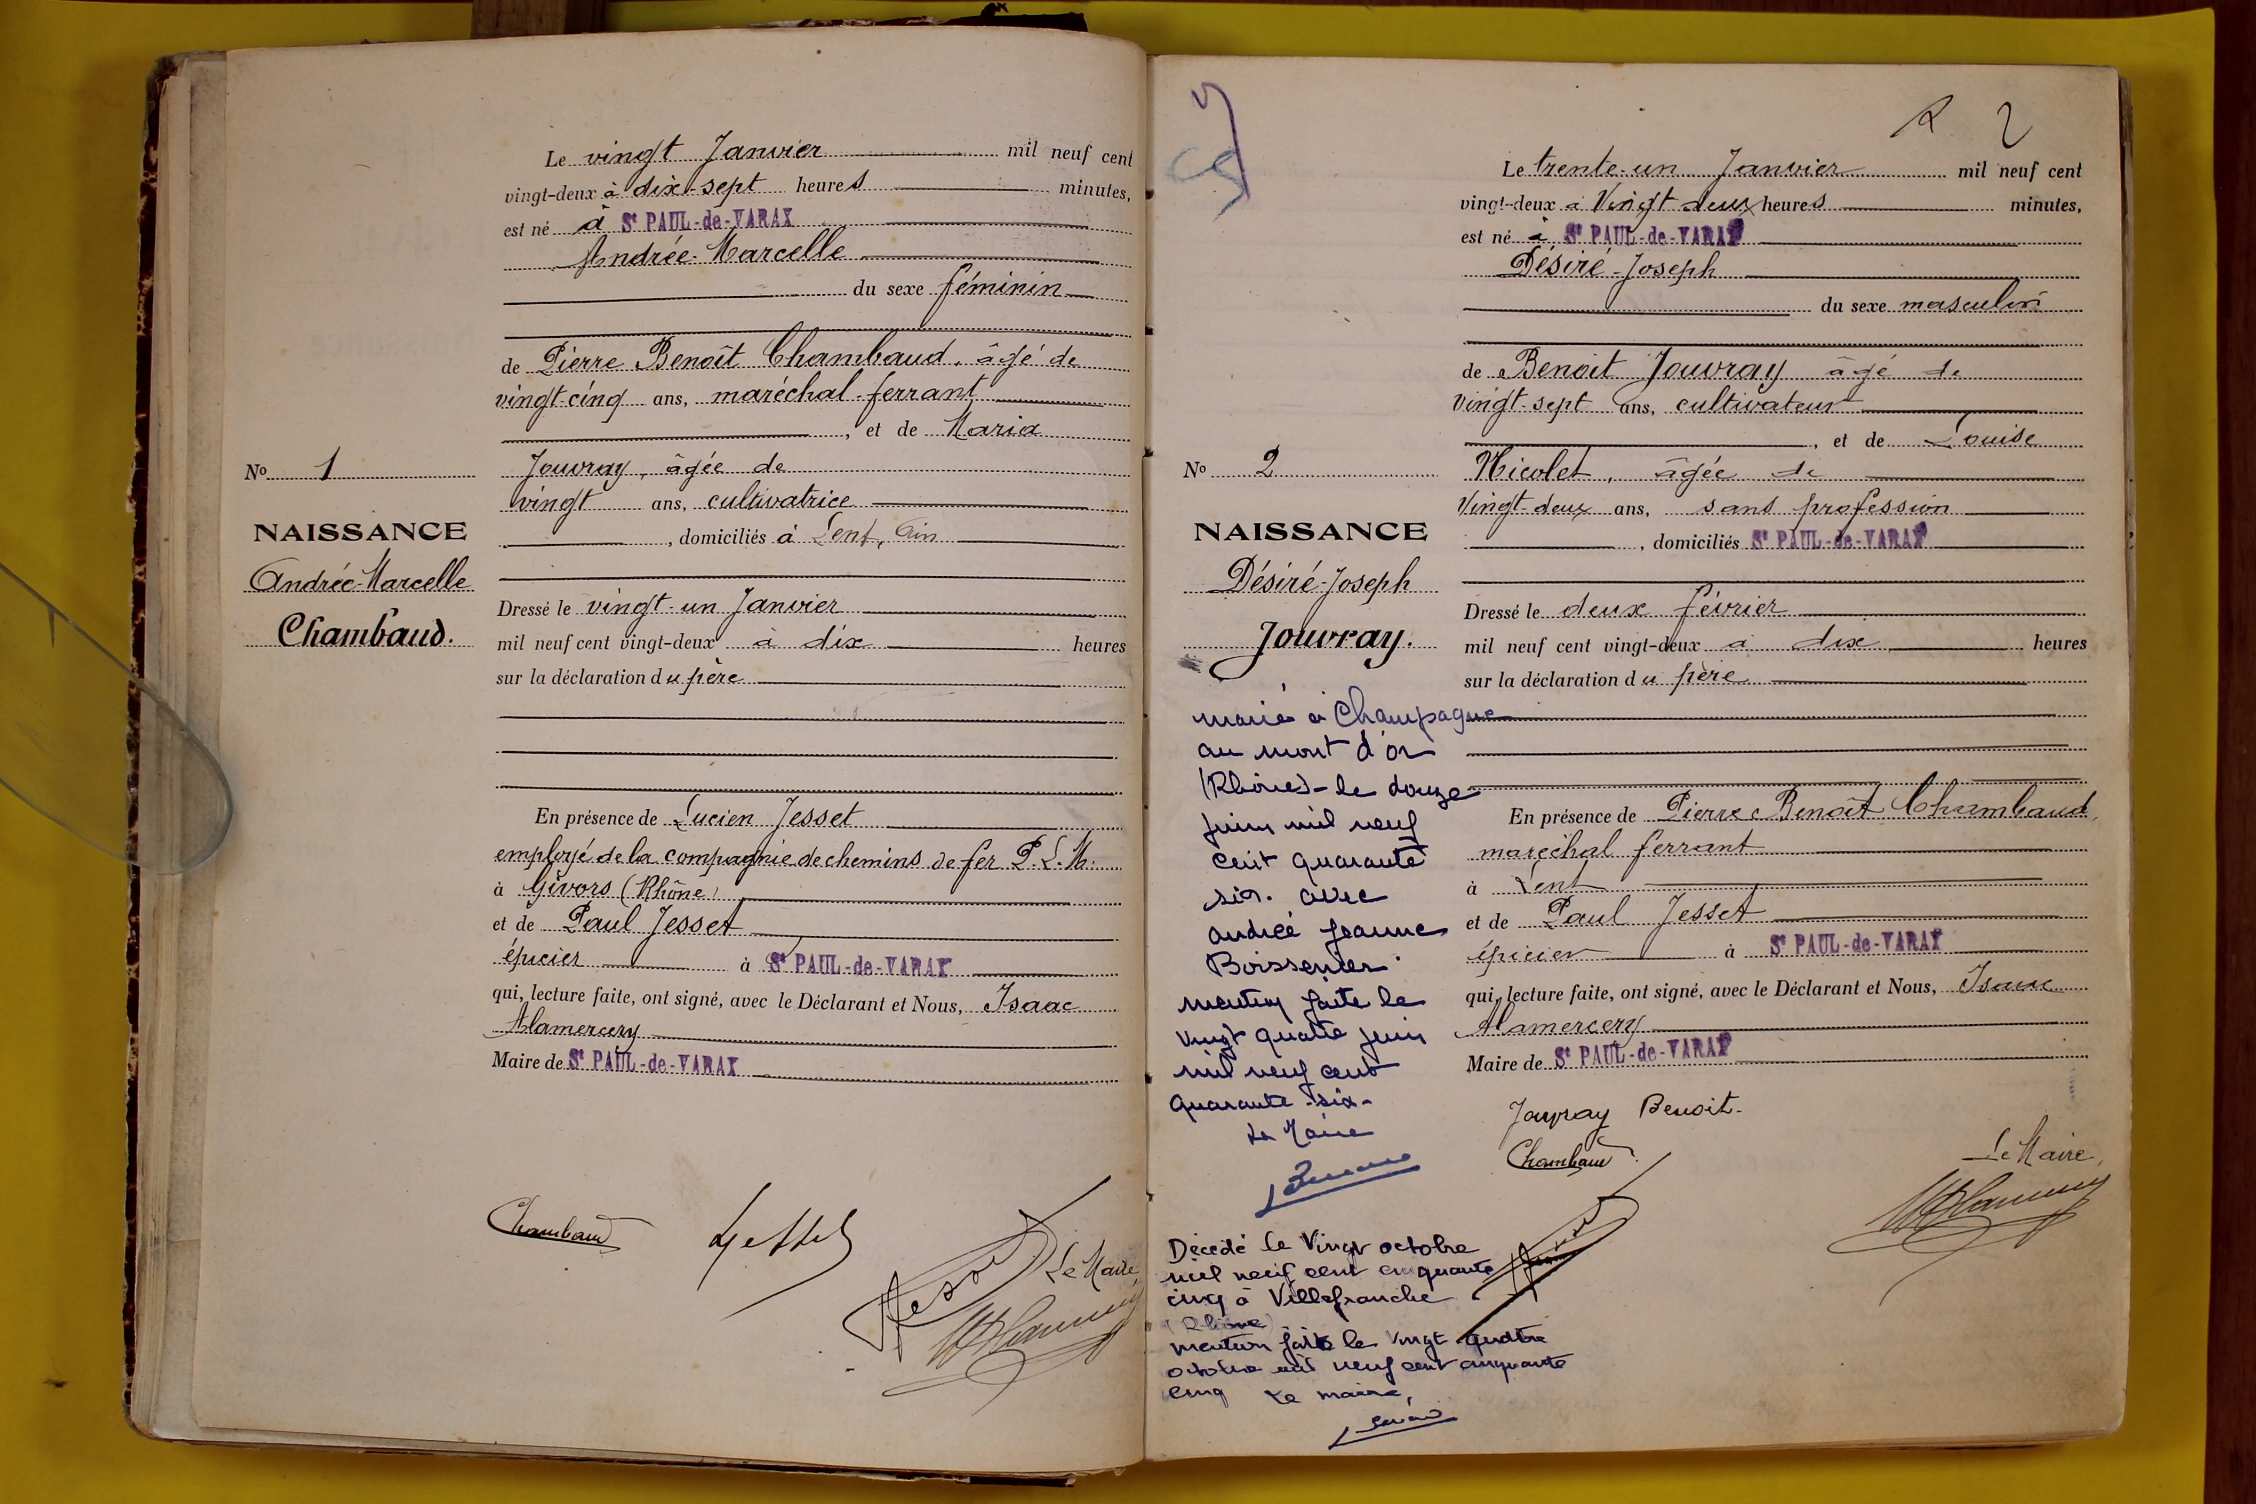 Le vingt Janvier mil neuf cent
vingt-deux à dix-sept heures minutes,
est né à St PAUL-de-VARAX
Andrée-Marcelle
du sexe féminin
de Pierre Benoît Chambaud, âgé de
vingt-cinq ans, maréchal-ferrant
, et de Maria
Jouvray, âgée de
vingt ans, cultivatrice
, domiciliés à Lent, Ain
No 1
NAISSANCE
Andrée-Marcelle
Chambaud.
Dressé le vingt-un Janvier
mil neuf cent vingt-deux à dix heures
sur la déclaration du père
En présence de Lucien Jesset
employé de la compagnie de chemins de fer P.L.M.
à Givors (Rhône)
et de Paul Jesset
épicier à St PAUL-de-VARAX
qui, lecture faite, ont signé, avec le Déclarant et Nous, Isaac
Alamercery
Maire de St PAUL-de-VARAX
Chambaud
Le Maire,
2
Le trente-un Janvier mil neuf cent
vingt-deux à Vingt deux heures minutes,
est né à St PAUL-de-VARAX
Désiré-Joseph
du sexe masculin
de Benoit Jouvray âgé de
vingt-sept ans, cultivateur
, et de Louise
Nicolet, âgée de
Vingt-deux ans, sans profession
, domiciliés St PAUL-de-VARAX
No 2
NAISSANCE
Désiré-Joseph
Jouvray.
Dressé le deux février
mil neuf cent vingt-deux à dix heures
sur la déclaration du père
En présence de Pierre Benoît Chambaud,
maréchal ferrant
à Lent
et de Paul Jesset
épicier à St PAUL-de-VARAX
qui, lecture faite, ont signé, avec le Déclarant et Nous, Isaac
Alamercery
Maire de St PAUL-de-VARAX
Jouvray Benoit.
Chambaud
Le Maire,
marié à Champagne
au mont d'or
(Rhône) - le douze
juin mil neuf
cent quarante
six. avec
andrée jeanne
mention faite le
vingt quatre juin
mil neuf cent
quarante-six-
Le Maire
Décédé le Vingt octobre
mil neuf cent cinquante
cinq à Villefranche
(Rhône)
mention faite le vingt quatre
octobre mil neuf cent cinquante
cinq Le maire,